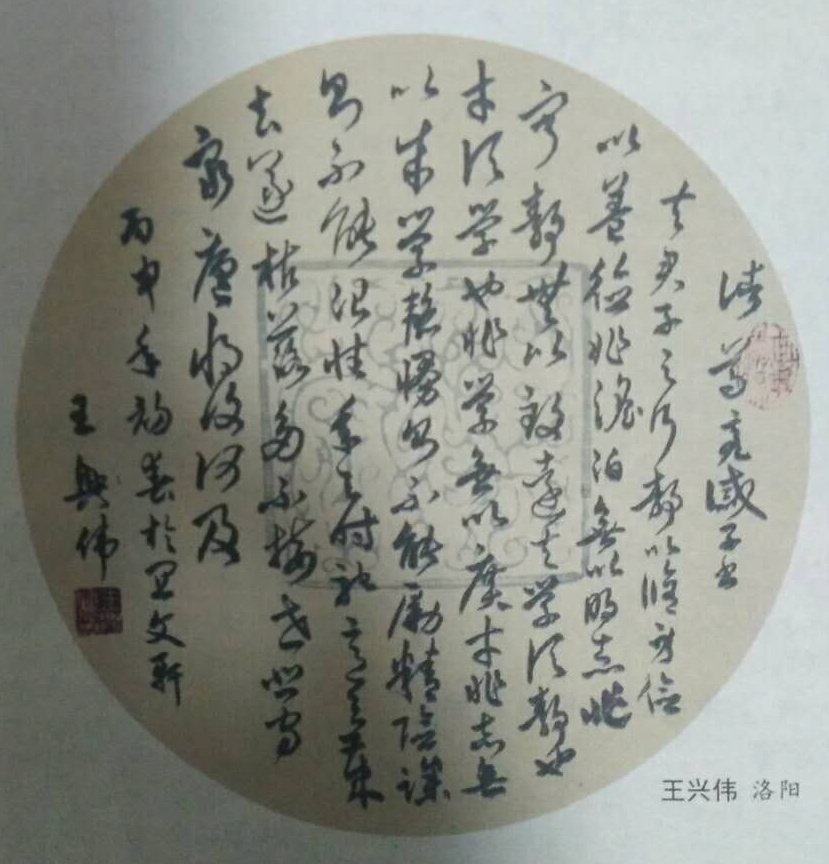 诸葛亮诫子书
夫君子之行静以修身俭
以养德非澹泊無以明志非
宁静無以致远夫学须静也
才须学也非学無以广才非志無
以成学慢则不能励精险躁
则不能治性年与时驰意与岁
去遂枯落多不接世悲守
穷庐将复何及
丙申年初春於文轩
王兴伟
王兴伟 洛阳